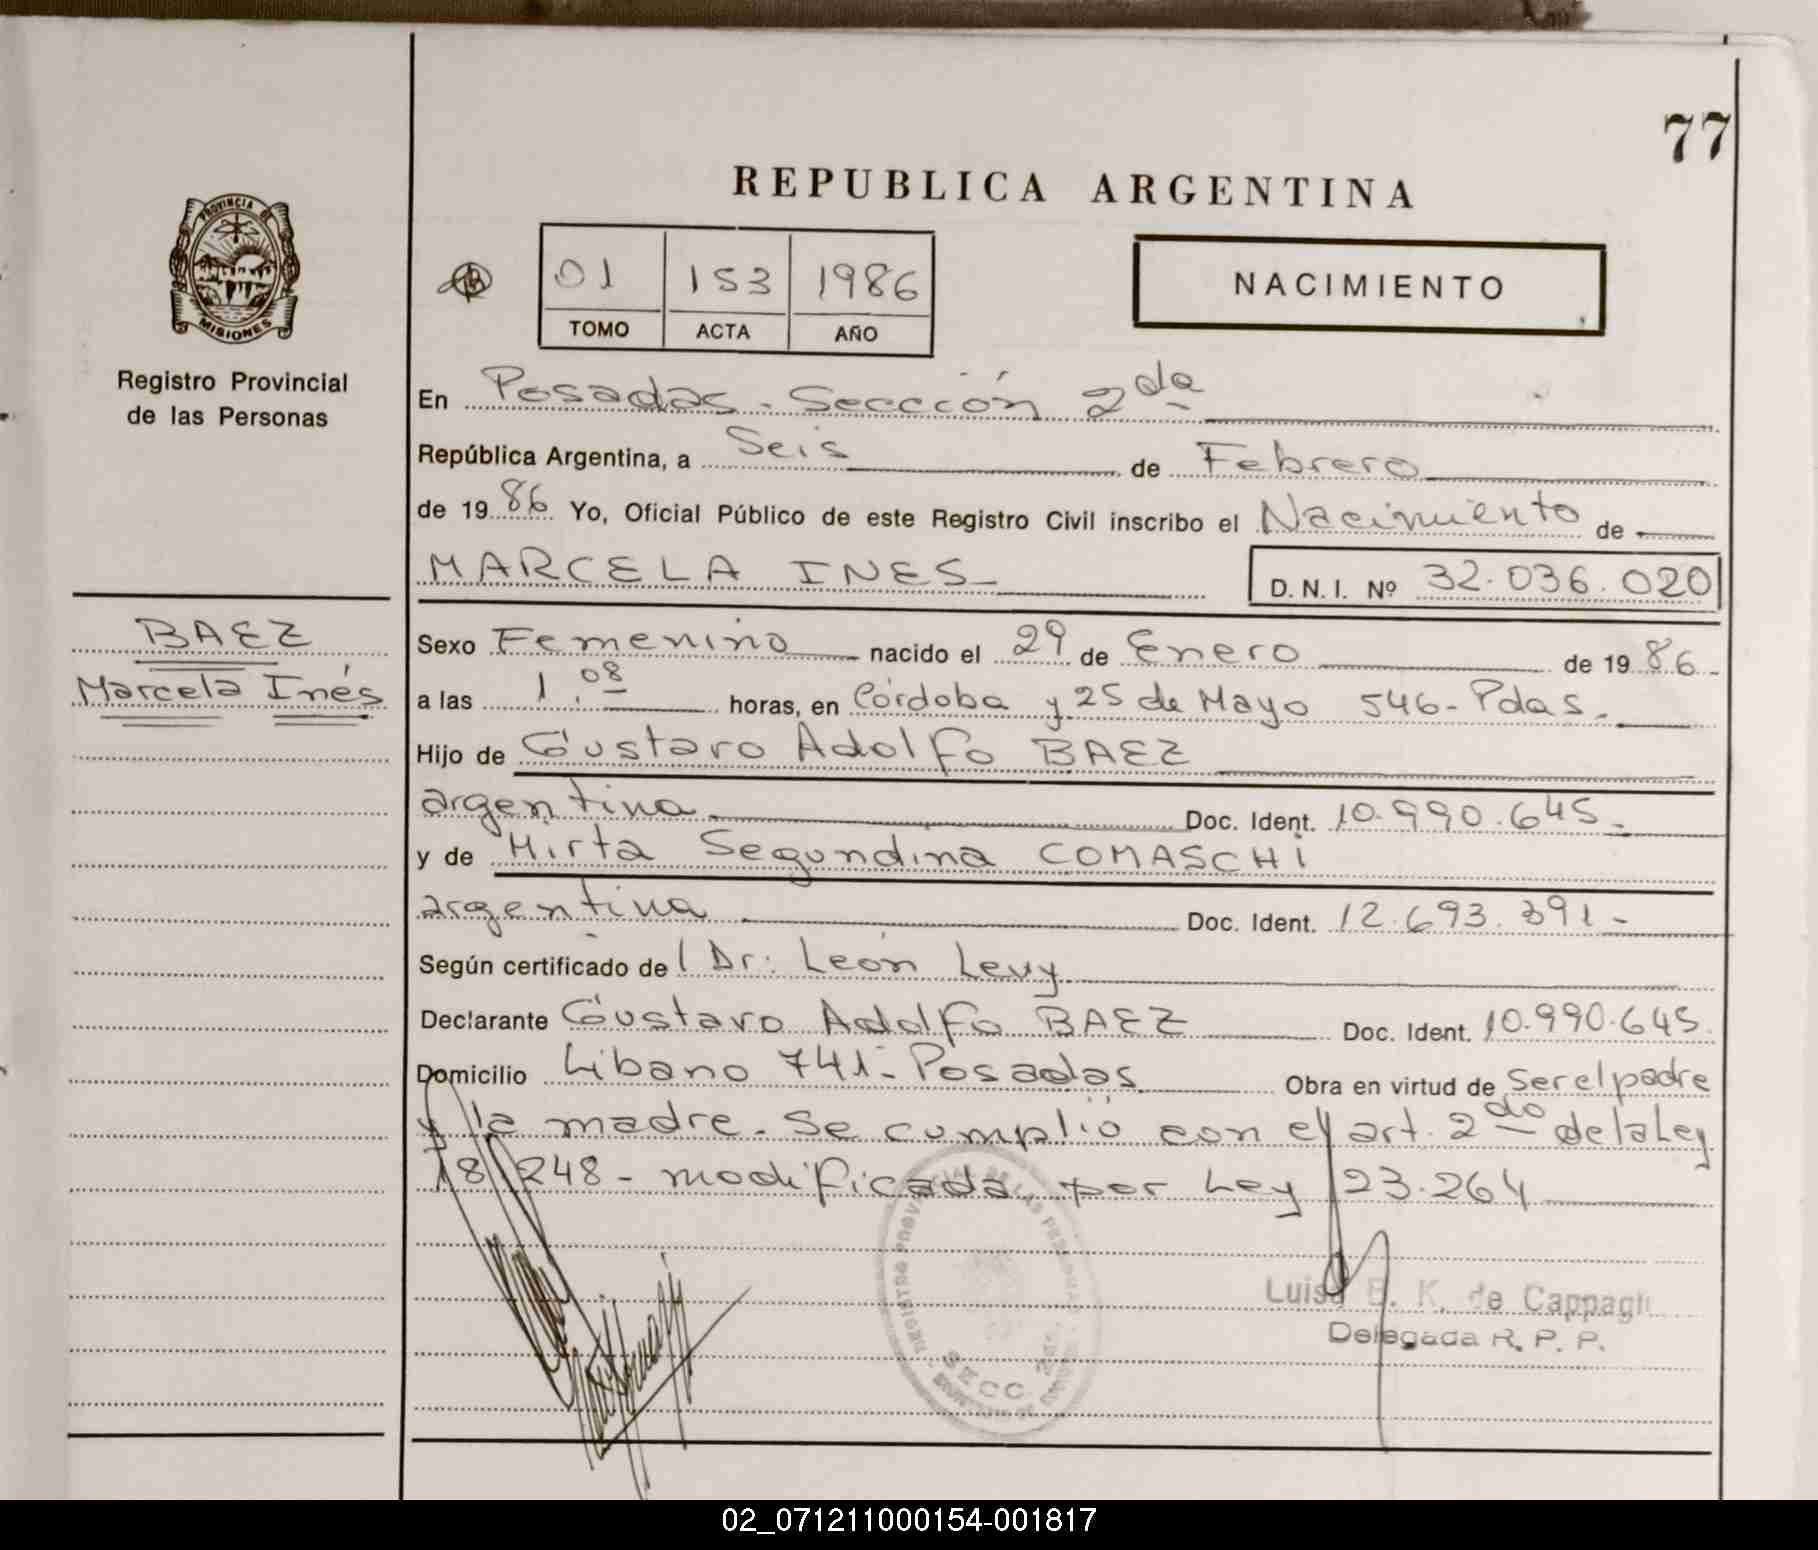 77
REPUBLICA ARGENTINA
PROVINCIA DE
MISIONES
Registro Provincial
de las Personas
01 153 1986
TOMO ACTA AÑO
NACIMIENTO
En Posadas - Sección 2da
República Argentina, a Seis de Febrero
de 1986 Yo, Oficial Público de este Registro Civil inscribo el Nacimiento de
MARCELA INES D. N. I. Nº 32.036.020
BAEZ
Marcela Inés
Sexo Femenino nacido el 29 de Enero de 1986-
a las 1.08 horas, en Córdoba y 25 de Mayo 546- Pdas.
Hijo de Gustavo Adolfo BAEZ
argentina Doc. Ident. 10.990.645-
y de Mirta Segundina COMASCHI
argentina Doc. Ident. 12.693.391-
Según certificado de Dr: León Levy
Declarante Gustavo Adolfo BAEZ Doc. Ident. 10.990.645.
Domicilio Libano 741- Posadas Obra en virtud de ser el padre
y la madre. Se cumplió con el art. 2do de la Ley
18.248- modificada por Ley 23.264
Luisa B. K. de Cappagli
Delegada R. P. P.
SECC. 2da.
02_071211000154-001817